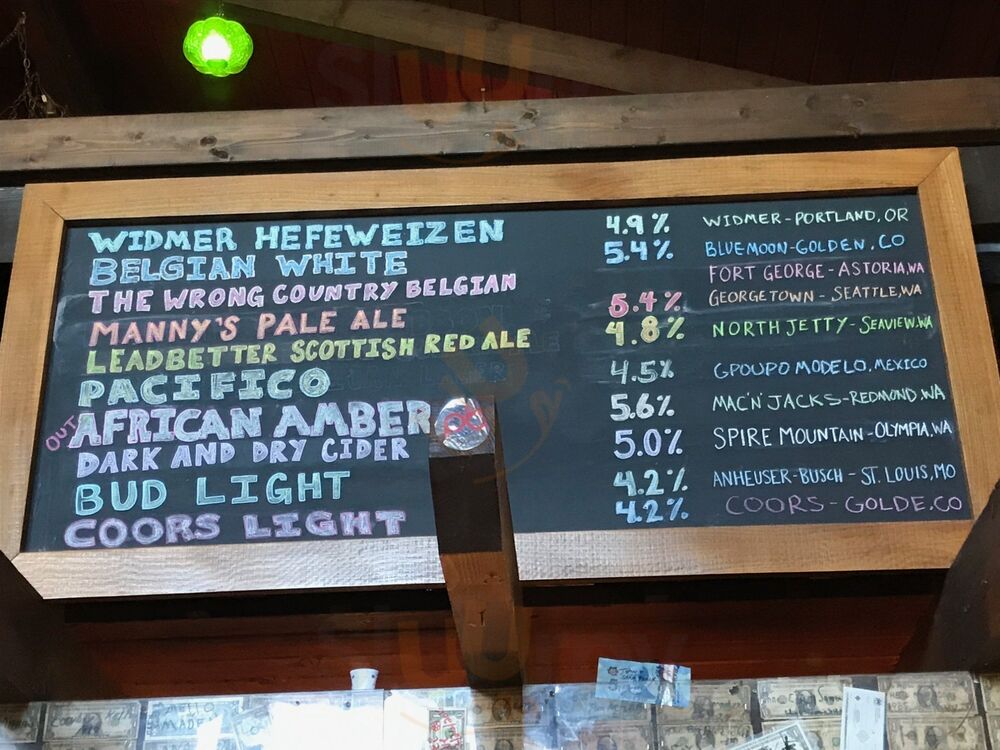 WIDMER HEFEWEIZEN 4.9% WIDMER-PORTLAND, OR
BELGIAN WHITE 5.4% BLUEMOON-GOLDEN, CO
THE WRONG COUNTRY BELGIAN FORT GEORGE-ASTORIA, WA
MANNY'S PALE ALE 5.4% GEORGETOWN - SEATTLE, WA
LEADBETTER SCOTTISH RED ALE 4.8% NORTH JETTY-SEAVIEW, WA
PACIFICO 4.5% GPOUPO MODELO, MEXICO
OUT AFRICAN AMBER 5.6% MAC'N'JACKS-REDMOND, WA
DARK AND DRY CIDER 5.0% SPIRE MOUNTAIN-OLYMPIA, WA
BUD LIGHT 4.2% ANHEUSER-BUSCH - ST. LOUIS, MO
COORS LIGHT 4.2% COORS - GOLDE, CO